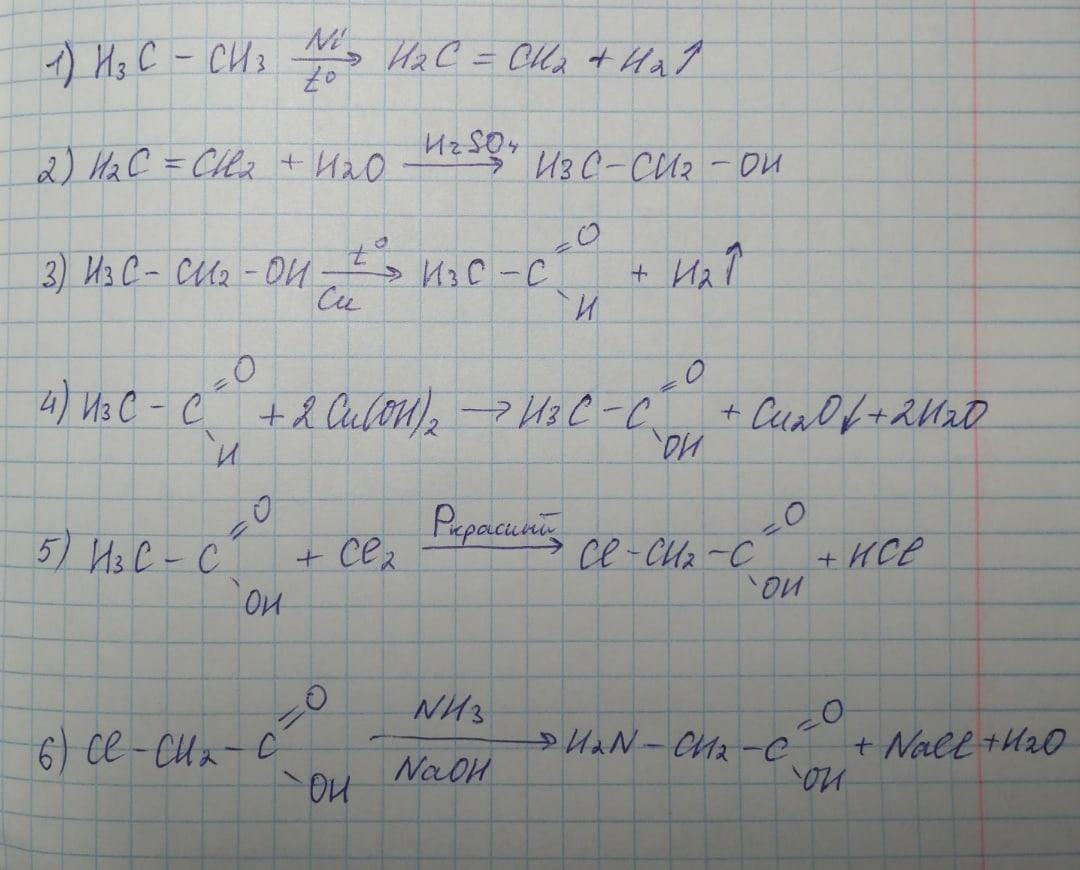 1) H₃C – CH₃ Ni/t° → H₂C = CH₂ + H₂↑
2) H₂C = CH₂ + H₂O H₂SO₄ → H₃C – CH₂ – OH
3) H₃C – CH₂ – OH t°/Cu → H₃C – C =O \H + H₂↑
4) H₃C – C =O \H + 2Cu(OH)₂ → H₃C – C =O \OH + Cu₂O↓ + 2H₂O
5) H₃C – C =O \OH + Cl₂ Pкрасный → Cl – CH₂ – C =O \OH + HCl
6) Cl – CH₂ – C =O \OH NH₃/NaOH → H₂N – CH₂ – C =O \OH + NaCl + H₂O